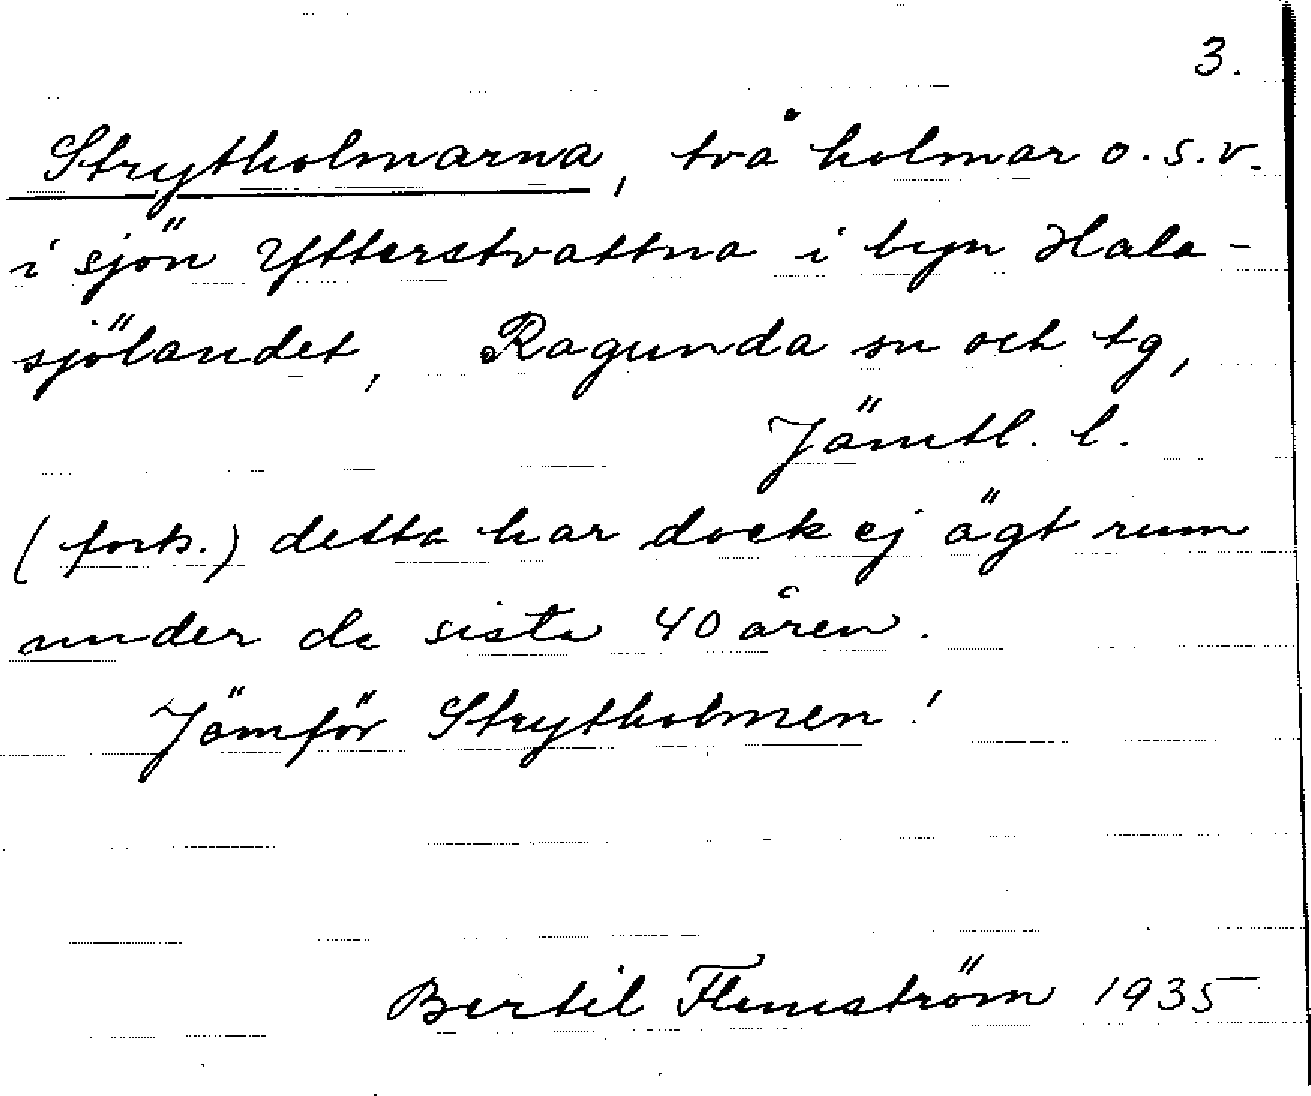 3.
Strytholmarna, två holmar o.s.v.
i sjön Ytterstvattna i byn Hala-
sjölandet, Ragunda sn och tg,
Jämtl. l.
(forts.) detta har dock ej ägt rum
under de sista 40 åren.
Jämför Strytholmen!
Bertil Flemström 1935